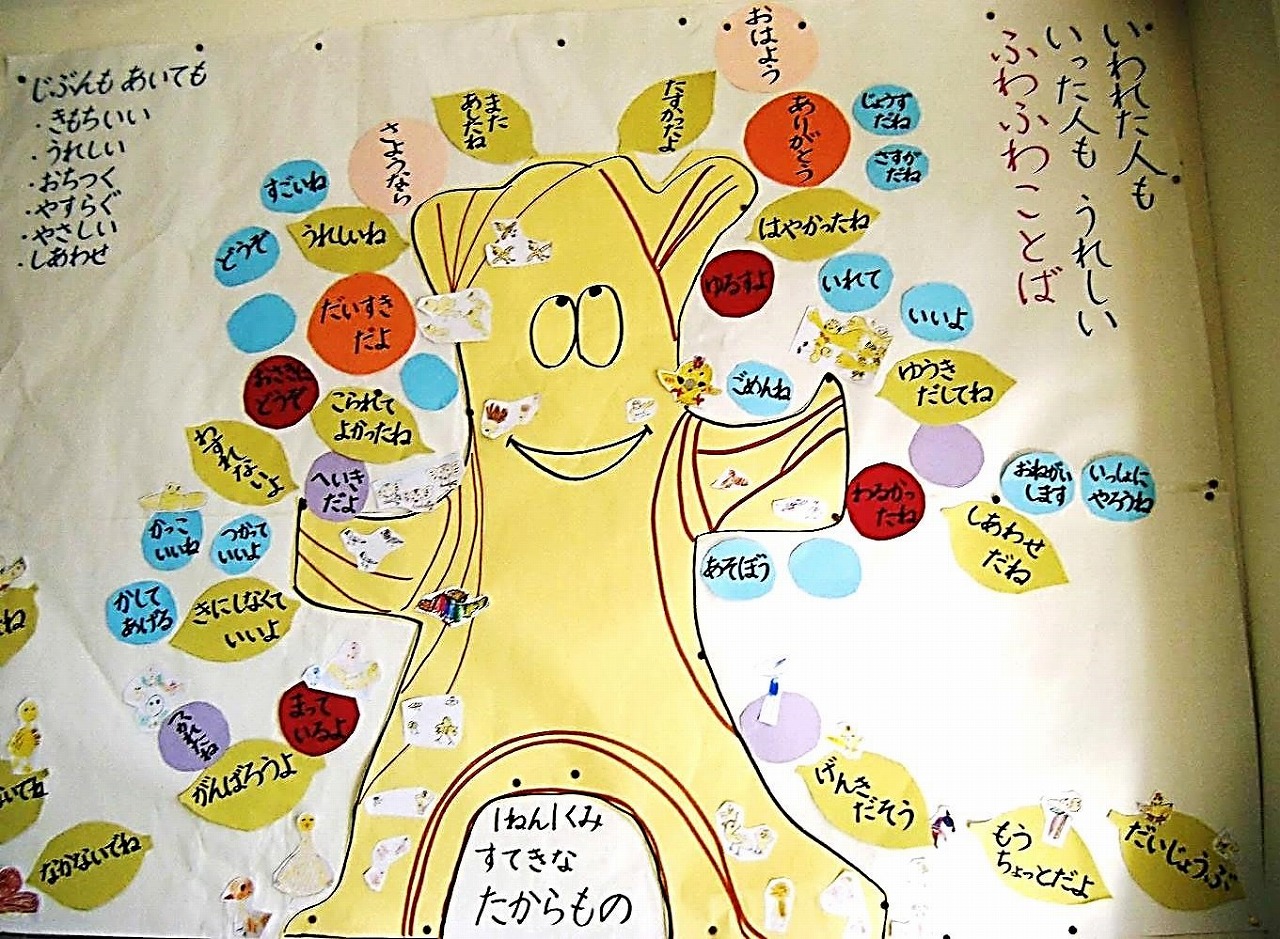 いわれた人も
いった人も うれしい
ふわふわことば
じぶんも あいても
・きもちいい
・うれしい
・おちつく
・やすらぐ
・やさしい
・しあわせ
おはよう
ありがとう
じょうず
だね
さすが
だね
たすかったよ
また
あしたね
さようなら
すごいね
うれしいね
どうぞ
だいすき
だよ
おさきに
どうぞ
こられて
よかったね
わすれないよ
へいき
だよ
かっこ
いいね
つかって
いいよ
かして
あげる
きにしなくて
いいよ
まって
いるよ
つかれたね
がんばろうよ
なかないでね
はやかったね
ゆるすよ
いれて
いいよ
ごめんね
ゆうき
だしてね
おねがい
します
いっしょに
やろうね
わるかっ
たね
しあわせ
だね
あそぼう
げんき
だそう
もう
ちょっとだよ
だいじょうぶ
1ねん1くみ
すてきな
たからもの